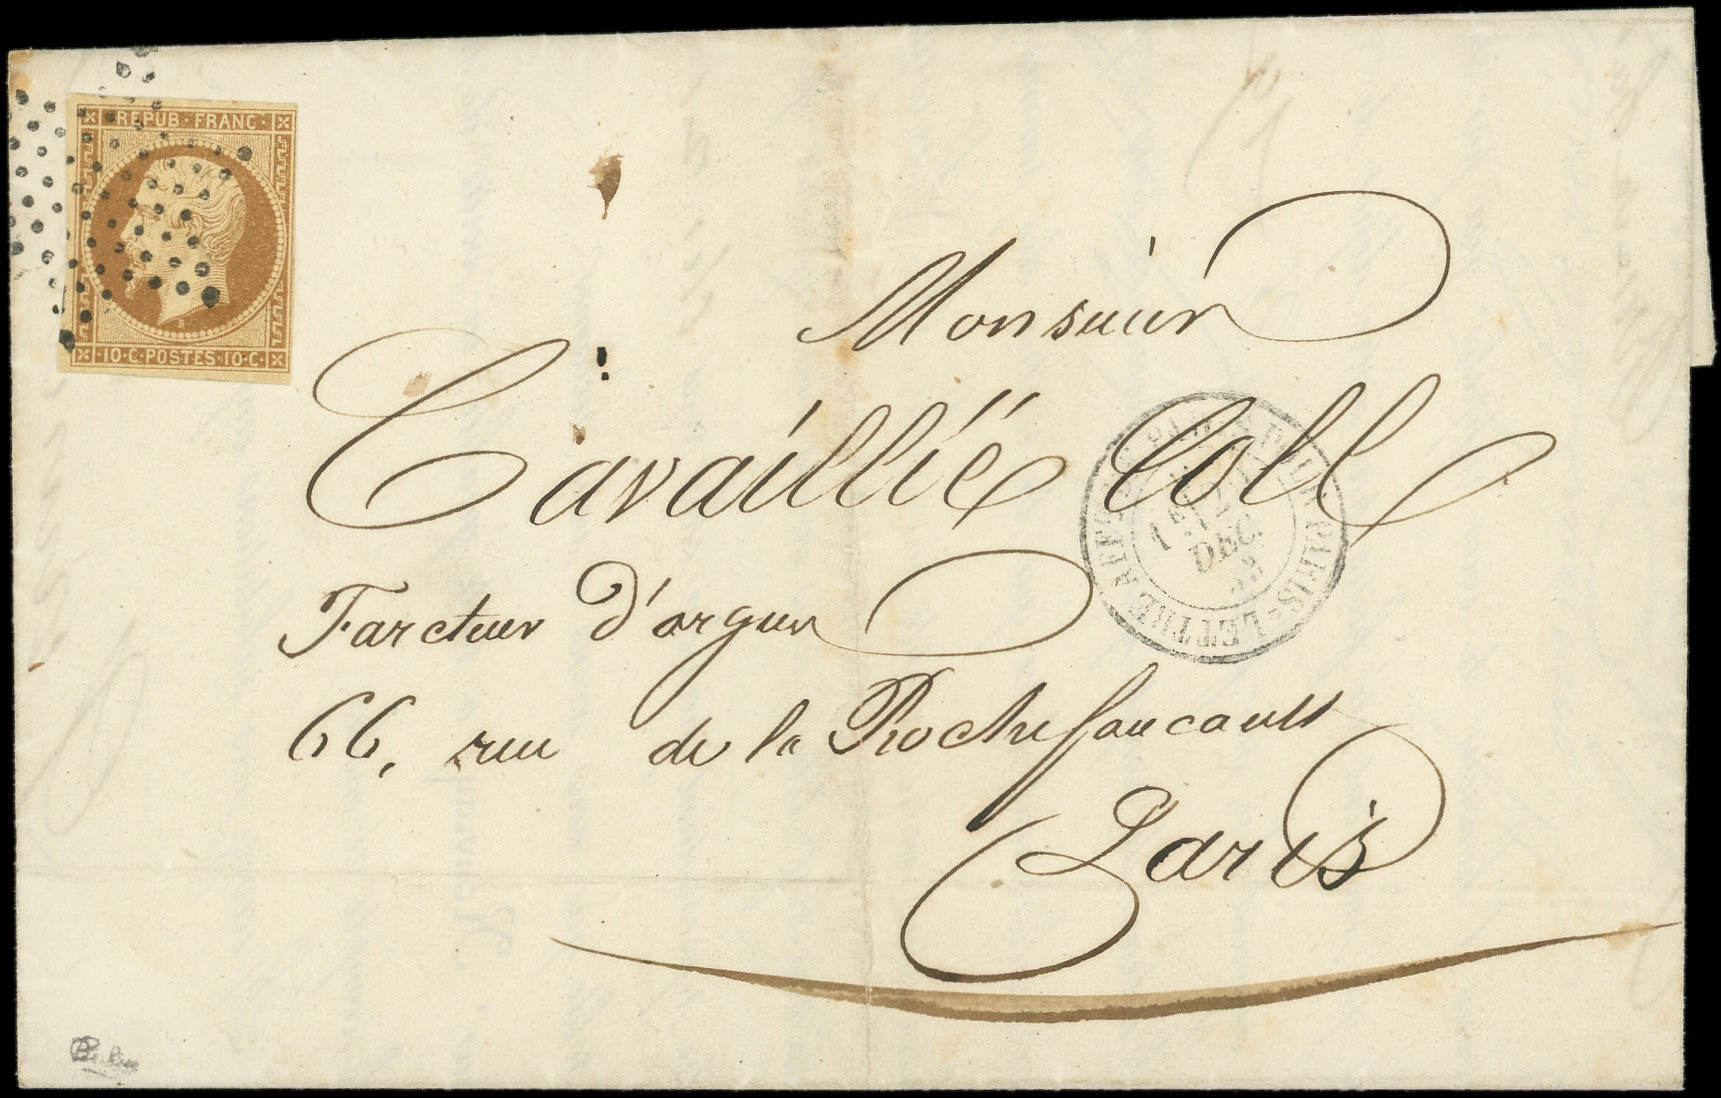 REPUB·FRANC·
B
·10·C·POSTES·10·C·
Monsieur
Cavaillié Coll
Farcteur d'orgues
66, rue de la Rochefoucault
Paris
LETTRE AFF PARIS PARIS
1E
DEC.
52